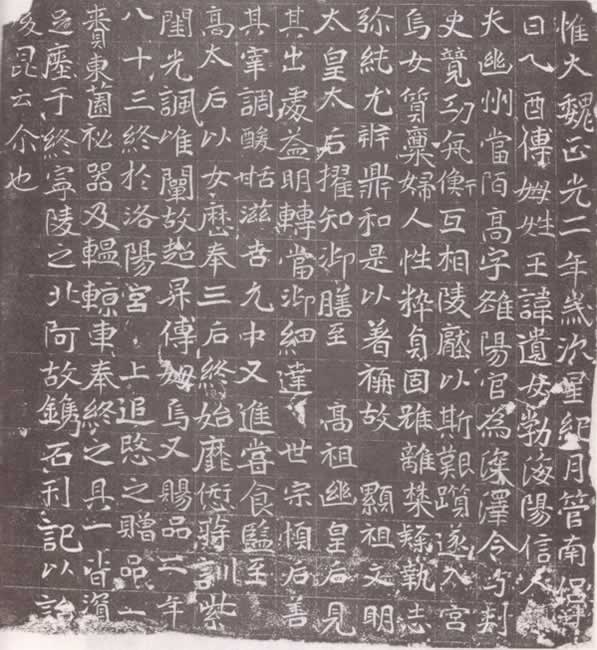 惟大魏正光二年歲次星紀月管南呂
日乙酉傅姆姓王諱遺女勃海陽信人
夫幽州當陌高字雒陽官為深澤令与刾
史競功亢衡互相陵壓以斯艱躓遂入宮
焉女質稟婦人性粹貞固雖離禁隸執志
弥純尤辨鼎和是以著稱故 顯祖文明
太皇太后擢知御膳至 高祖幽皇后見
其出處益明轉當御細達 世宗順后善
其宰調酸甜滋味允中又進嘗食監至
高太后以女歷奉三后終始靡愆蔣訓紫
閨光諷唯闡故超昇傅姆焉又賜品二年
八十三終於洛陽宮 上追愍之贈品一
賚東薗祕器及轀輬車奉終之具一皆資
于終寧陵之北阿故鐫石刊記以詒
昆云尒也